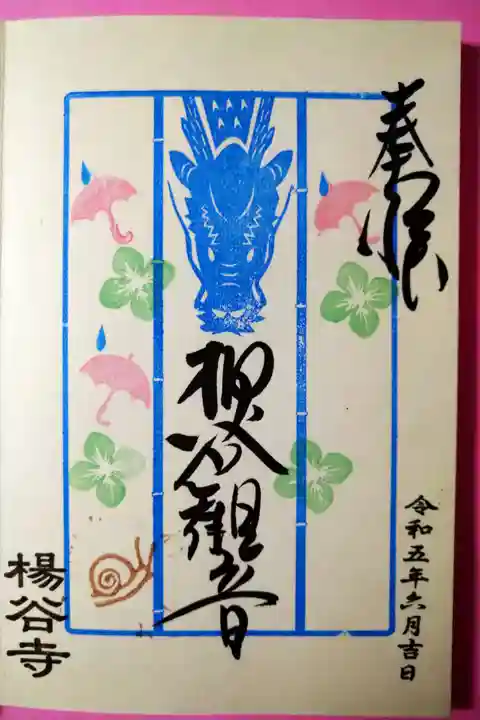 奉拝
令和五年六月吉日
柳谷観音
楊谷寺